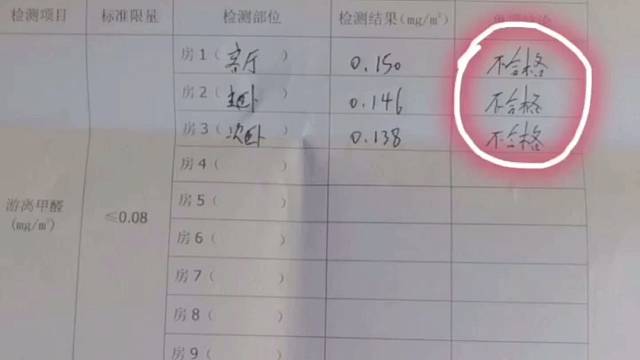 检测项目 标准限量 检测部位 检测结果(mg/m³)
房1( 客厅 ) 0.150 不合格
房2( 主卧 ) 0.146 不合格
房3( 次卧 ) 0.138 不合格
房4( )
游离甲醛 ≤0.08 房5( )
(mg/m³) 房6( )
房7( )
房8( )
房9(